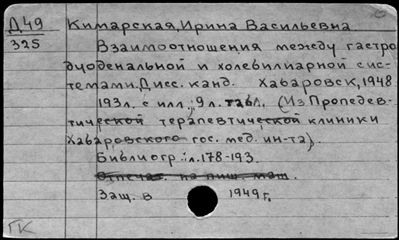 Д49 Кимарская, Ирина Васильевна
325
Взаимоотношения между гастро
дуоденальной и холевилиарной сис-
темами. Дисс. канд. Хабаровск, 1948
193л. с илл; 9л. табл. (Из Пропедев-
тической терапевтической клиники
Хабаровского гос. мед. ин-та).
Библиогр.: л. 178-193.
Отпечат. на пиш. маш.
Защ. в 1949 г.
ГК